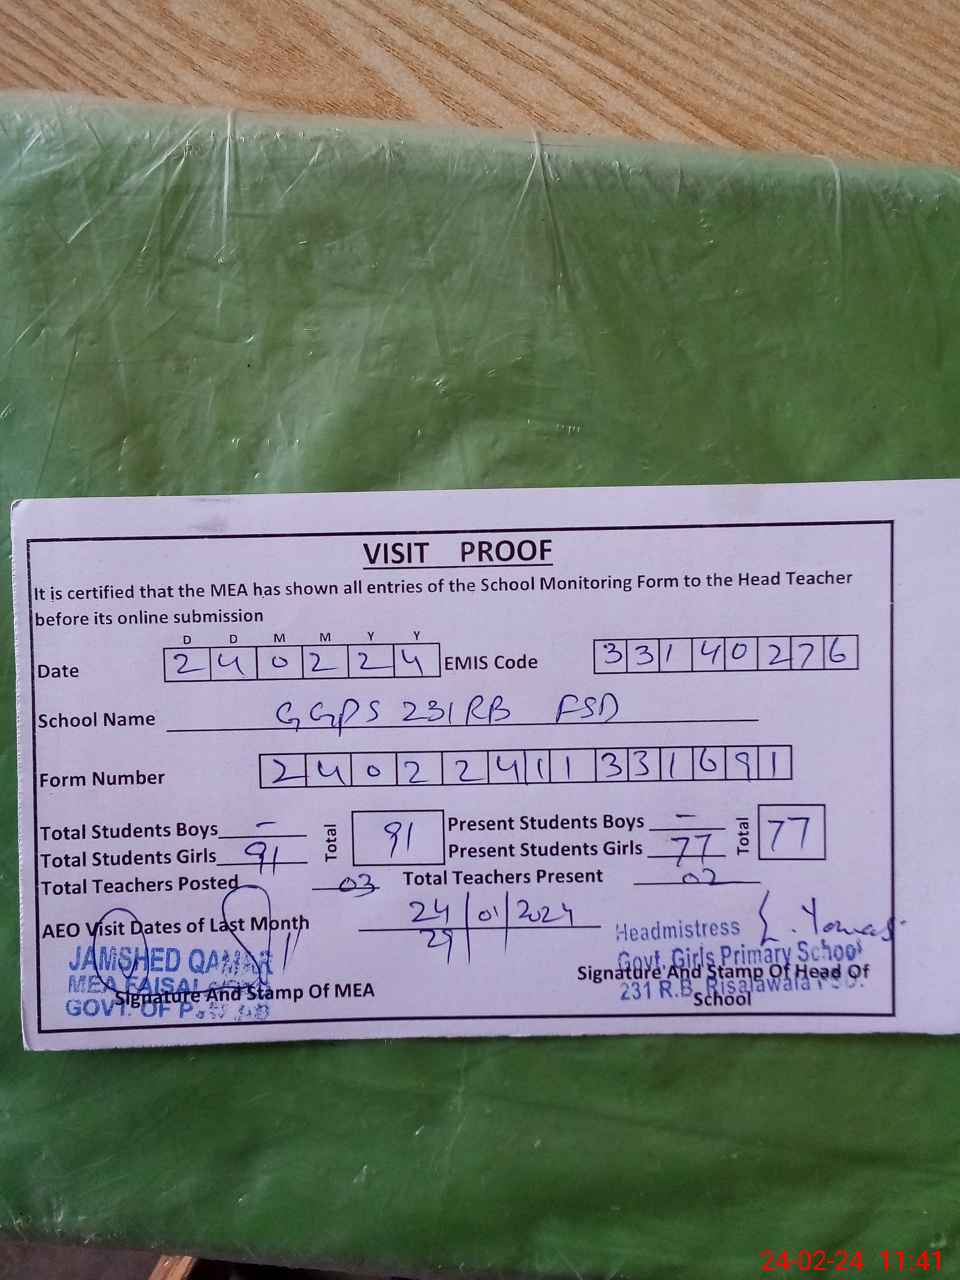 VISIT PROOF
It is certified that the MEA has shown all entries of the School Monitoring Form to the Head Teacher
before its online submission
D D M M Y Y
Date 240224 EMIS Code 33140276
School Name GGPS 231 RB FSD
Form Number 24022411331691
Total Students Boys - Total 91 Present Students Boys - Total 77
Total Students Girls 91 Present Students Girls 77
Total Teachers Posted 03 Total Teachers Present 02
AEO Visit Dates of Last Month 24/01/2024
29
JAMSHED QAMAR
MEA FAISAL
GOVT. OF
Signature And Stamp Of MEA
Headmistress
Govt. Girls Primary School
231 R.B. Risalawala FSD.
Signature And Stamp Of Head Of
School
24-02-24 11:41